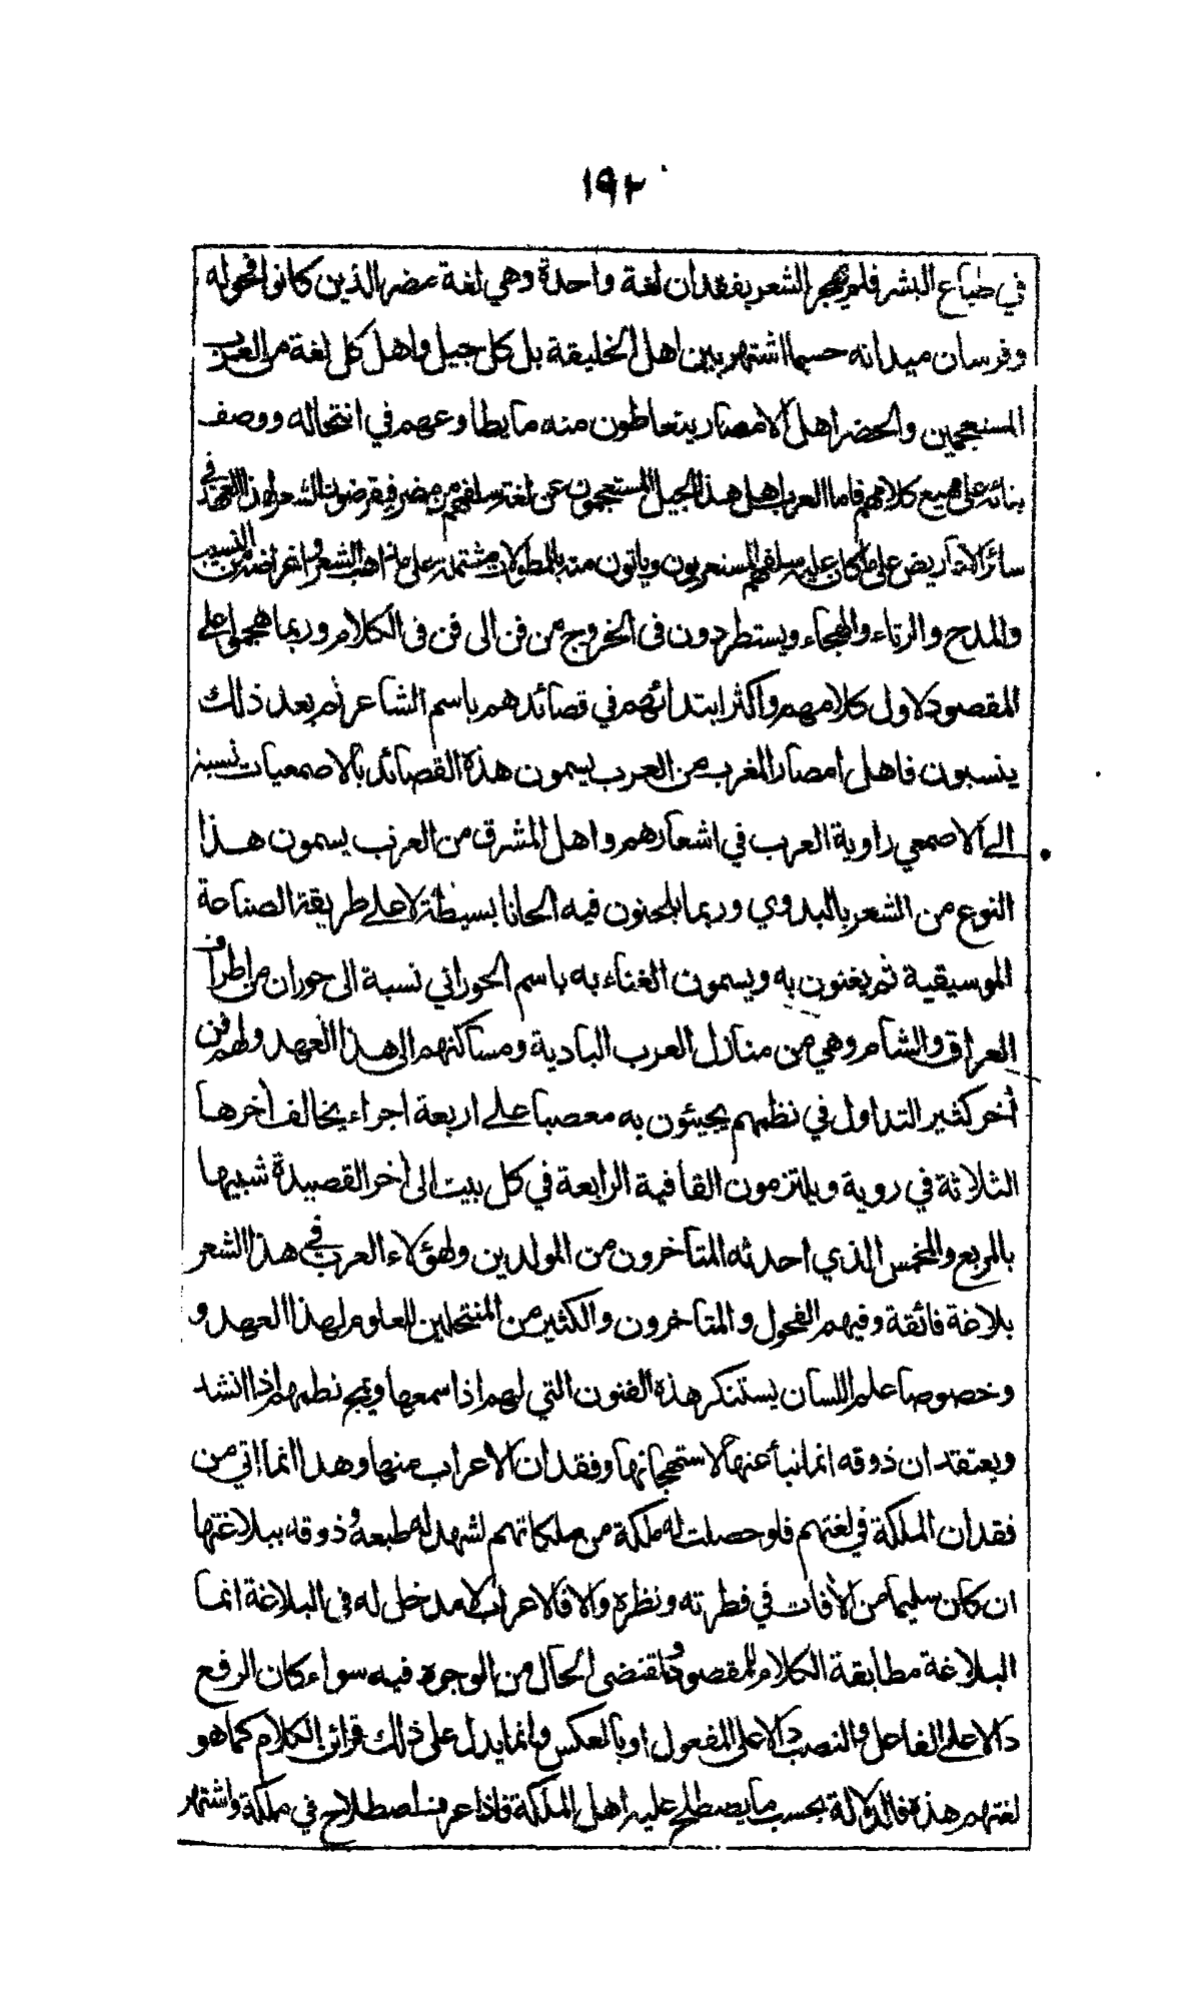 ١٩٢
في طباع البشر فلم يهجر الشعر بفقدان لغة واحدة وهي لغة مضر الذين كانوا فحوله
وفرسان ميدانه حسبما اشتهر بين اهل الخليقة بل كل جيل واهل كل لغة من العرب
المستعجمين والحضر اهل الامصار يتعاطون منه ما يطاوعهم في انتحاله ووصف
بنائه على مهيع كلامهم فاما العرب اهل هذا الجيل المستعجمون عن لغة سلفهم من مضر فيقرضون الشعر لهذا العهد في
سائر الاعاريض على ما كان عليه سلفهم المستعربون وياتون منه بالمطولات مشتملة على مذاهب الشعر واغراضه من النسيب
والمدح والرثاء والهجاء ويستطردون فى الخروج من فن الى فن فى الكلام وربما هجموا على
المقصود لاول كلامهم واكثر ابتدائهم في قصائدهم باسم الشاعر ثم بعد ذلك
ينسبون فاهل امصار المغرب من العرب يسمون هذه القصائد بالاصمعيات نسبة
الى الاصمعي راوية العرب في اشعارهم واهل المشرق من العرب يسمون هذا
النوع من الشعر بالبدوي وربما يلحنون فيه الحانا بسيطة لا على طريقة الصناعة
الموسيقية ثم يغنون به ويسمون الغناء به باسم الحوراني نسبة الى حوران من اطراف
العراق والشام وهي من منازل العرب البادية ومساكنهم الى هذا العهد ولهم فن
آخر كثير التداول في نظمهم يجيئون به معصبا على اربعة اجزاء يخالف آخرها
الثلاثة في روية ويلتزمون القافية الرابعة في كل بيت الى آخر القصيدة شبيها
بالمربع والمخمس الذي احدثه المتأخرون من المولدين ولهؤلاء العرب في هذا الشعر
بلاغة فائقة وفيهم الفحول والمتاخرون والكثير من المنتحلين للعلوم لهذا العهد و
وخصوصا علم اللسان يستنكر هذه الفنون التي لهم اذا سمعها ويمج نظمهم اذا انشد
ويعتقد ان ذوقه انما نبأ عنها لاستهجانها وفقدان الاعراب منها وهذا انما اتي من
فقدان الملكة في لغتهم فلو حصلت له ملكة من ملكاتهم لشهد له طبعه وذوقه ببلاغتها
ان كان سليما من الآفات في فطرته ونظره والا فالاعراب لا مدخل له فى البلاغة انما
البلاغة مطابقة الكلام للمقصود ولمقتضى الحال من الوجوه فيه سواء كان الرفع
دالا على الفاعل والنصب دالا على المفعول او بالعكس وانما يدل على ذلك قرائن الكلام كما هو
لغتهم هذه فالدلالة بحسب ما يصطلح عليه اهل الملكة فاذا عرف اصطلاح في ملكة واشتهر